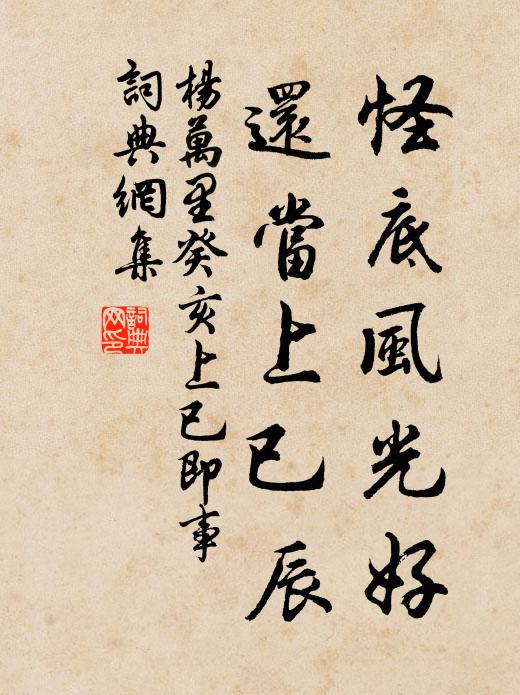 怪底風光好
還當上巳辰
楊萬里癸亥上巳即事
詞典網集
詞典網印